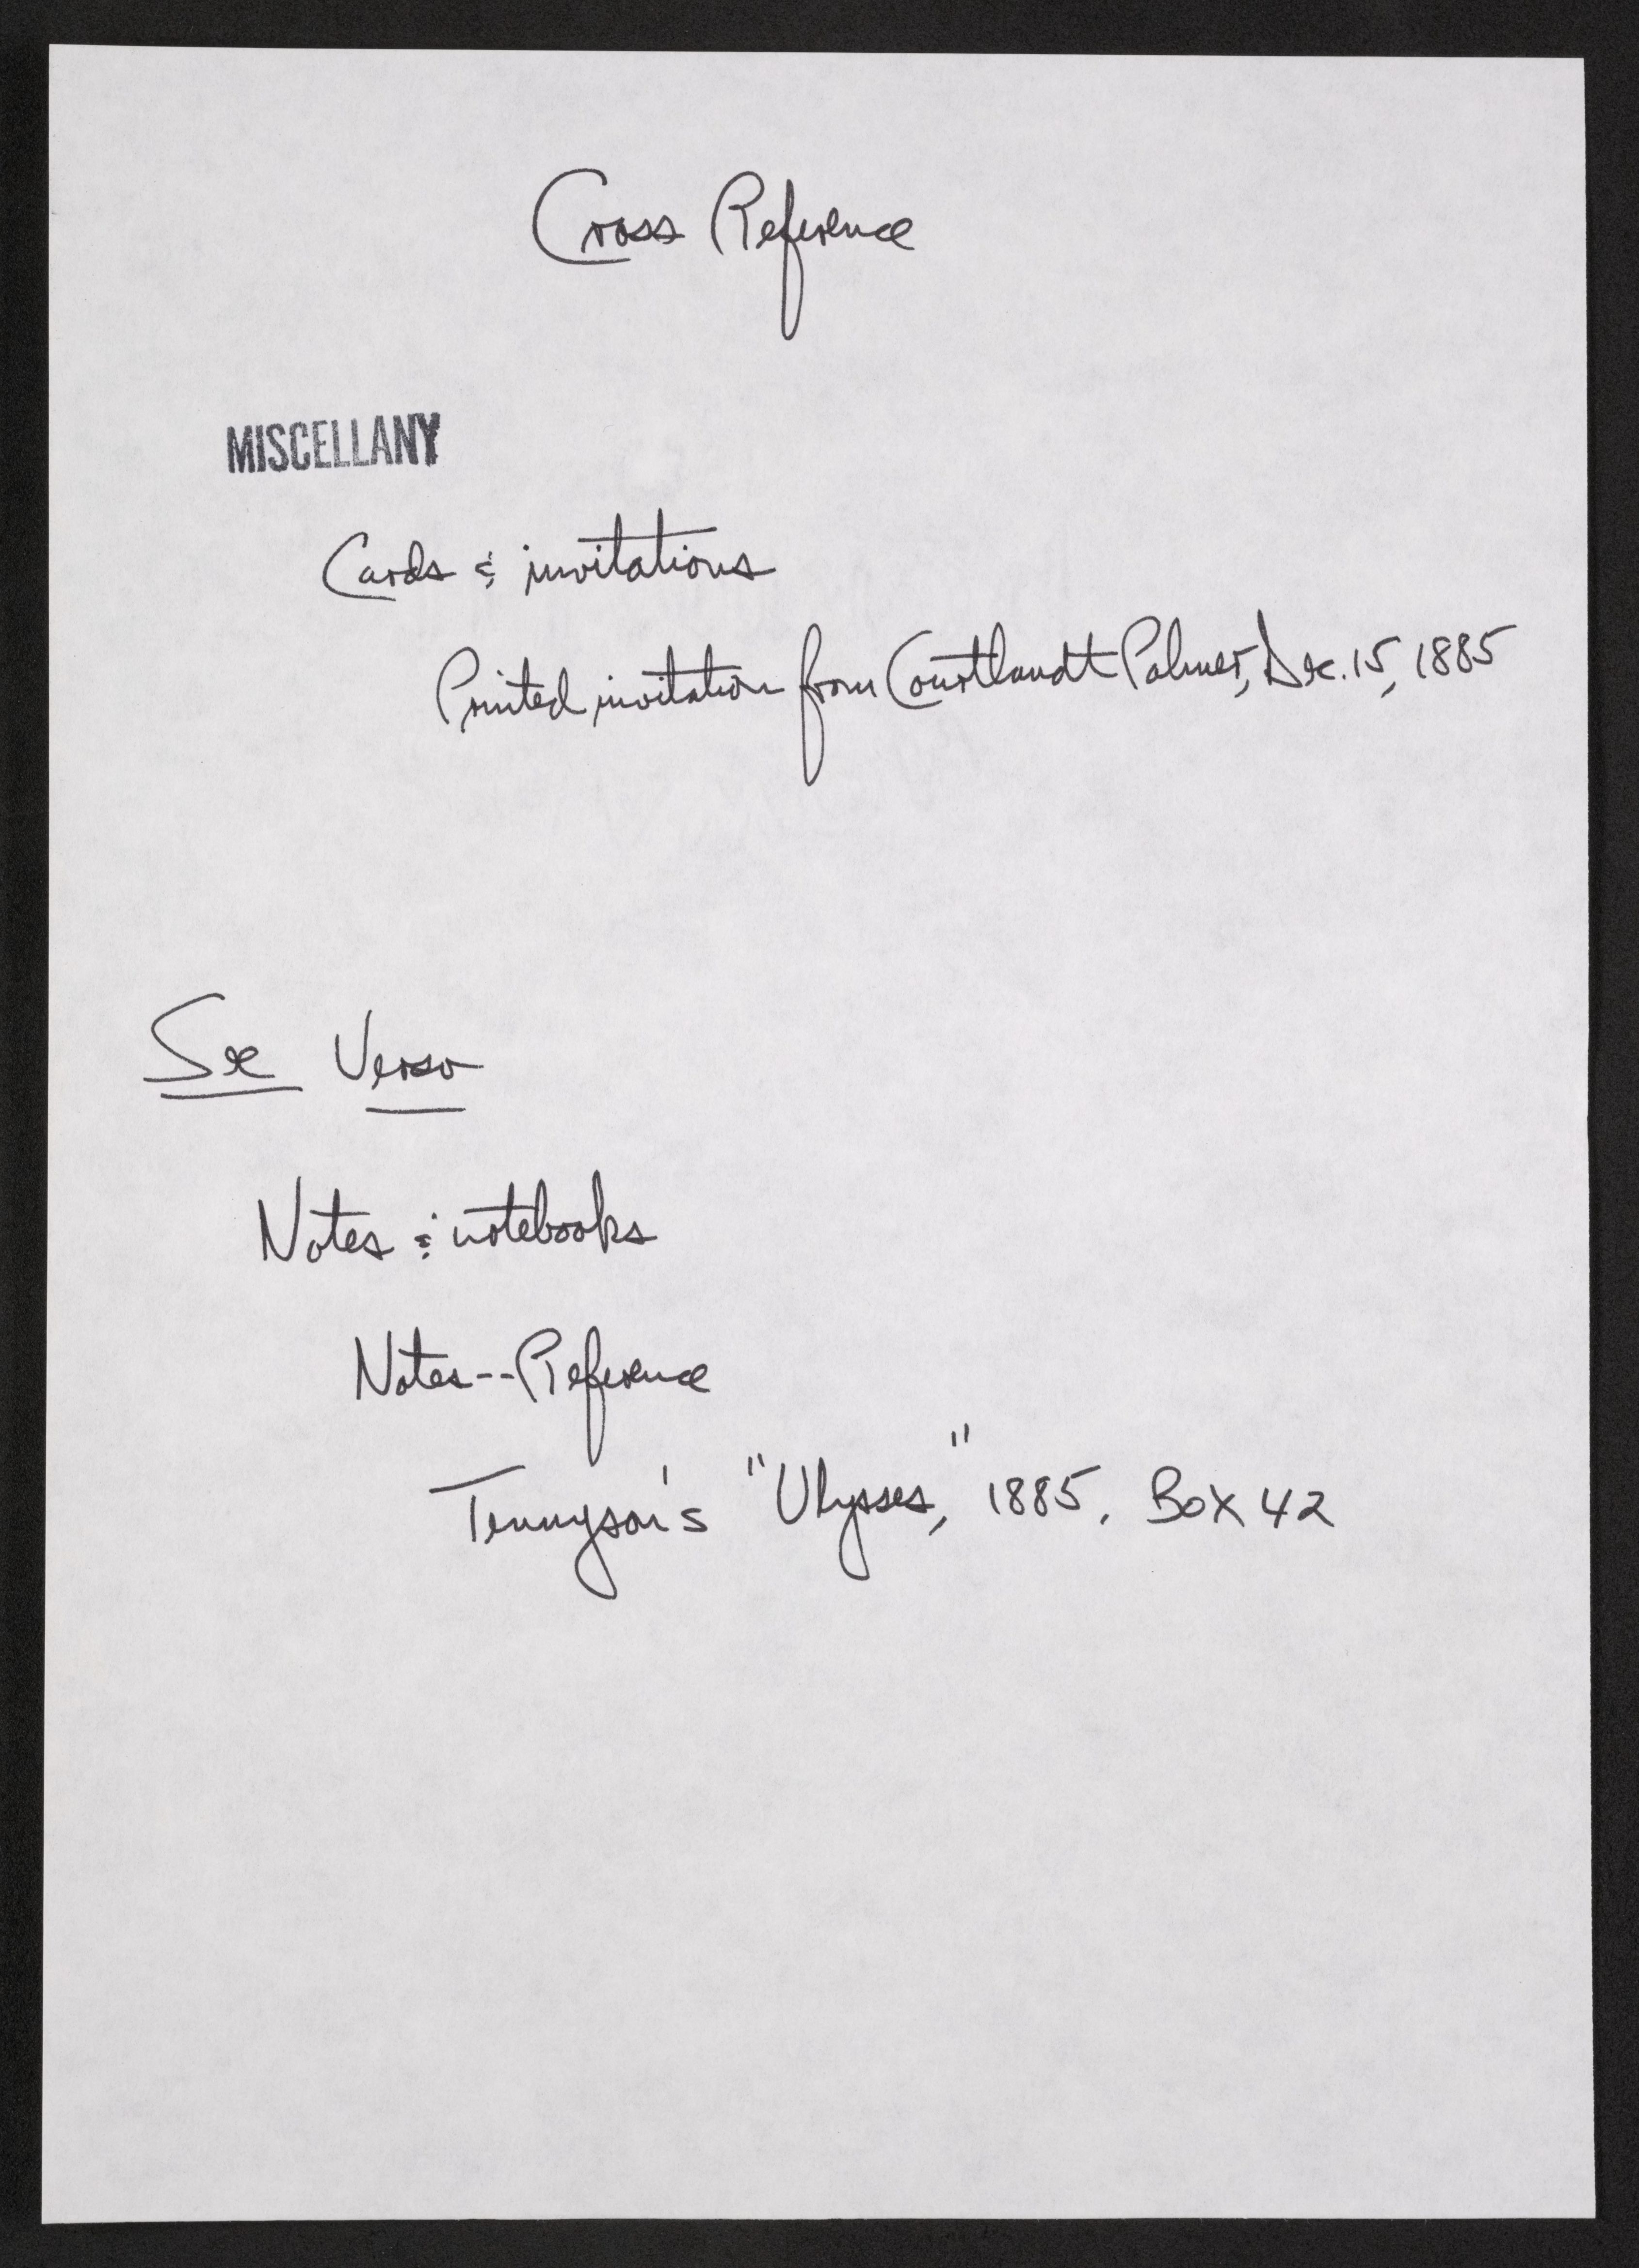 Cross Reference
MISCELLANY
Cards & invitations
Printed invitation from Courtlandt Palmer, Dec. 15, 1885
See Verso
Notes & notebooks
Notes--Reference
Tennyson's "Ulysses," 1885. Box 42